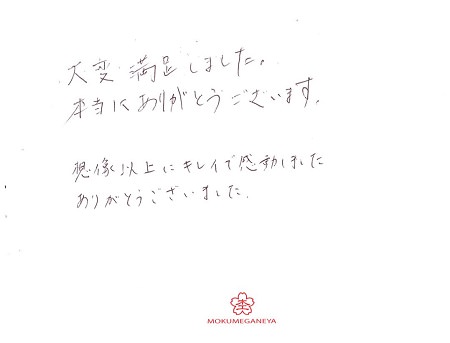 大変満足しました。
本当にありがとうございます。
想像以上にキレイで感動しました
ありがとうございました.
MOKUMEGANEYA